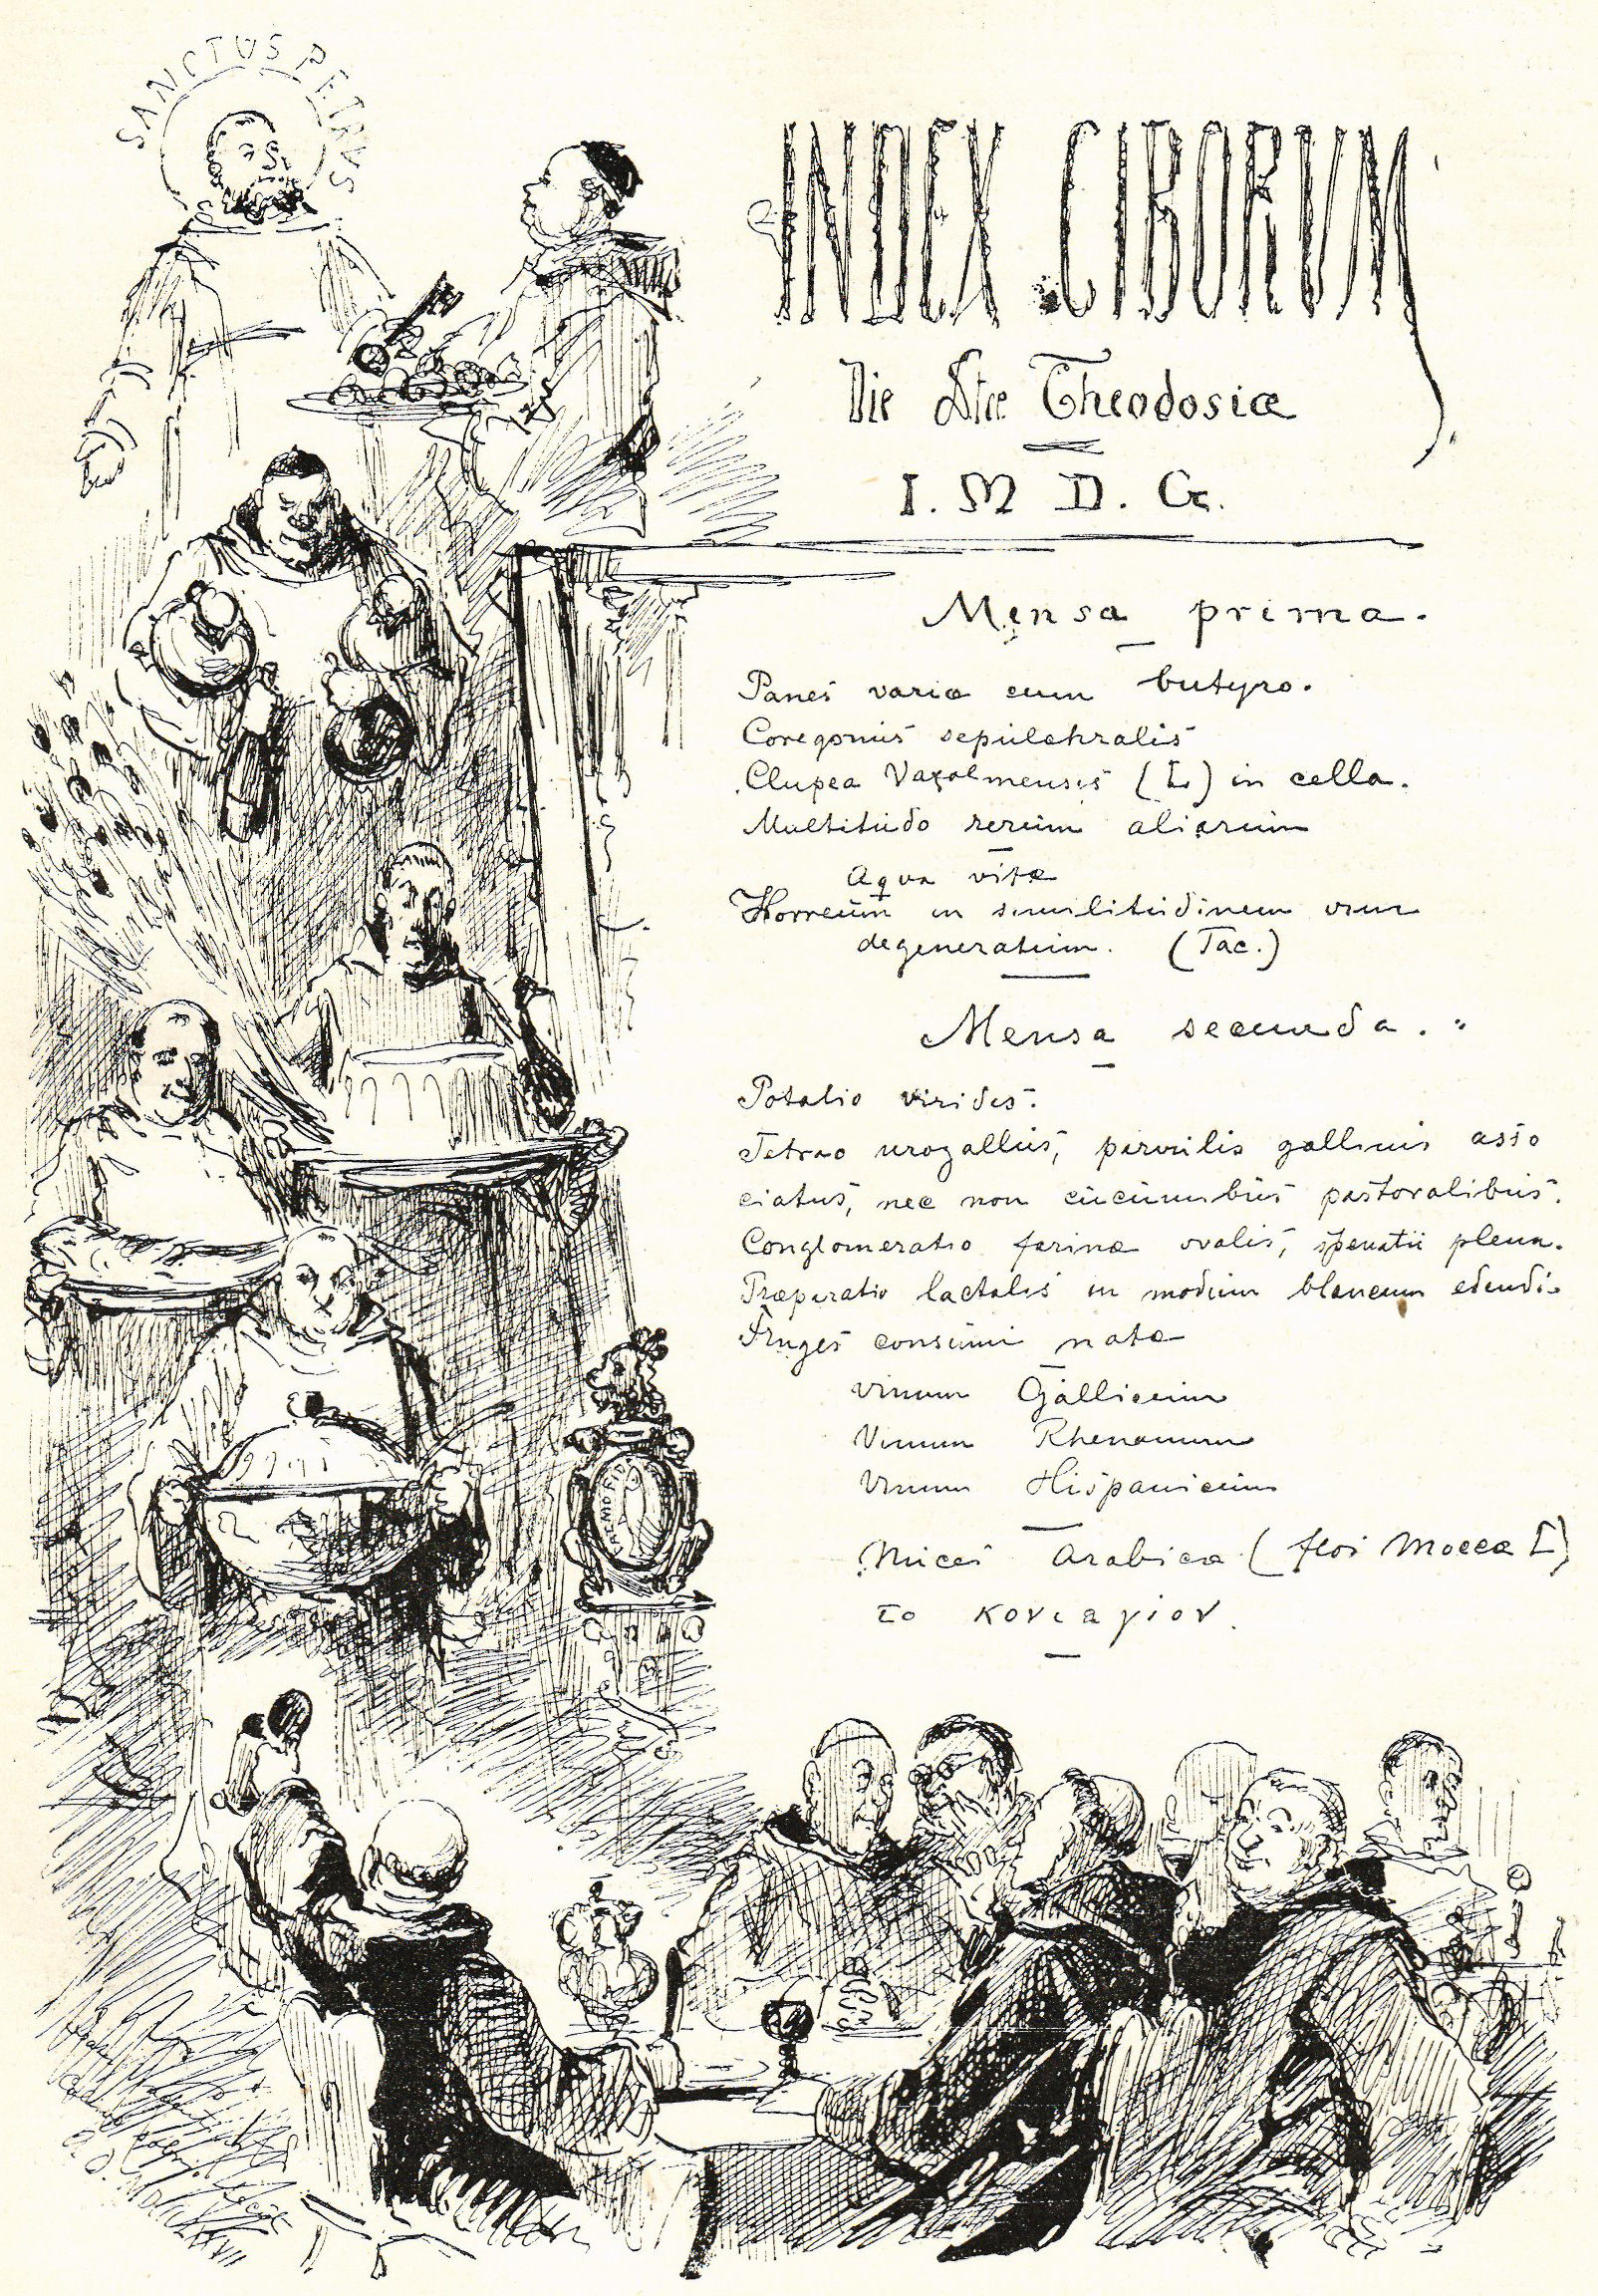 SANCTUS PETRUS
INDEX CIBORUM
Die Stæ Theodosiæ
I. M D. G.
Mensa prima.
Panes variæ cum butyro.
Coregonus sepulchralis
Clupea Vaxolmensis (L) in cella.
Multitudo rerum aliarum
Aqua vitæ
Horreum in similitudinem vini
degeneratum. (Tac.)
Mensa secunda.
Potatio virides.
Tetrao urogallus, parvulis gallinis asso
ciatus, nec non cucumibus pastoralibus.
Conglomeratio farinæ ovalis, spenatii plena.
Præparatio lactalis in modum blancum edendi.
Fruges consumi natæ
Vinum Gallicum
Vinum Rhenanum
Vinum Hispanicum
Nuces Arabicæ (flos Moccæ L)
το κονιαγιον.